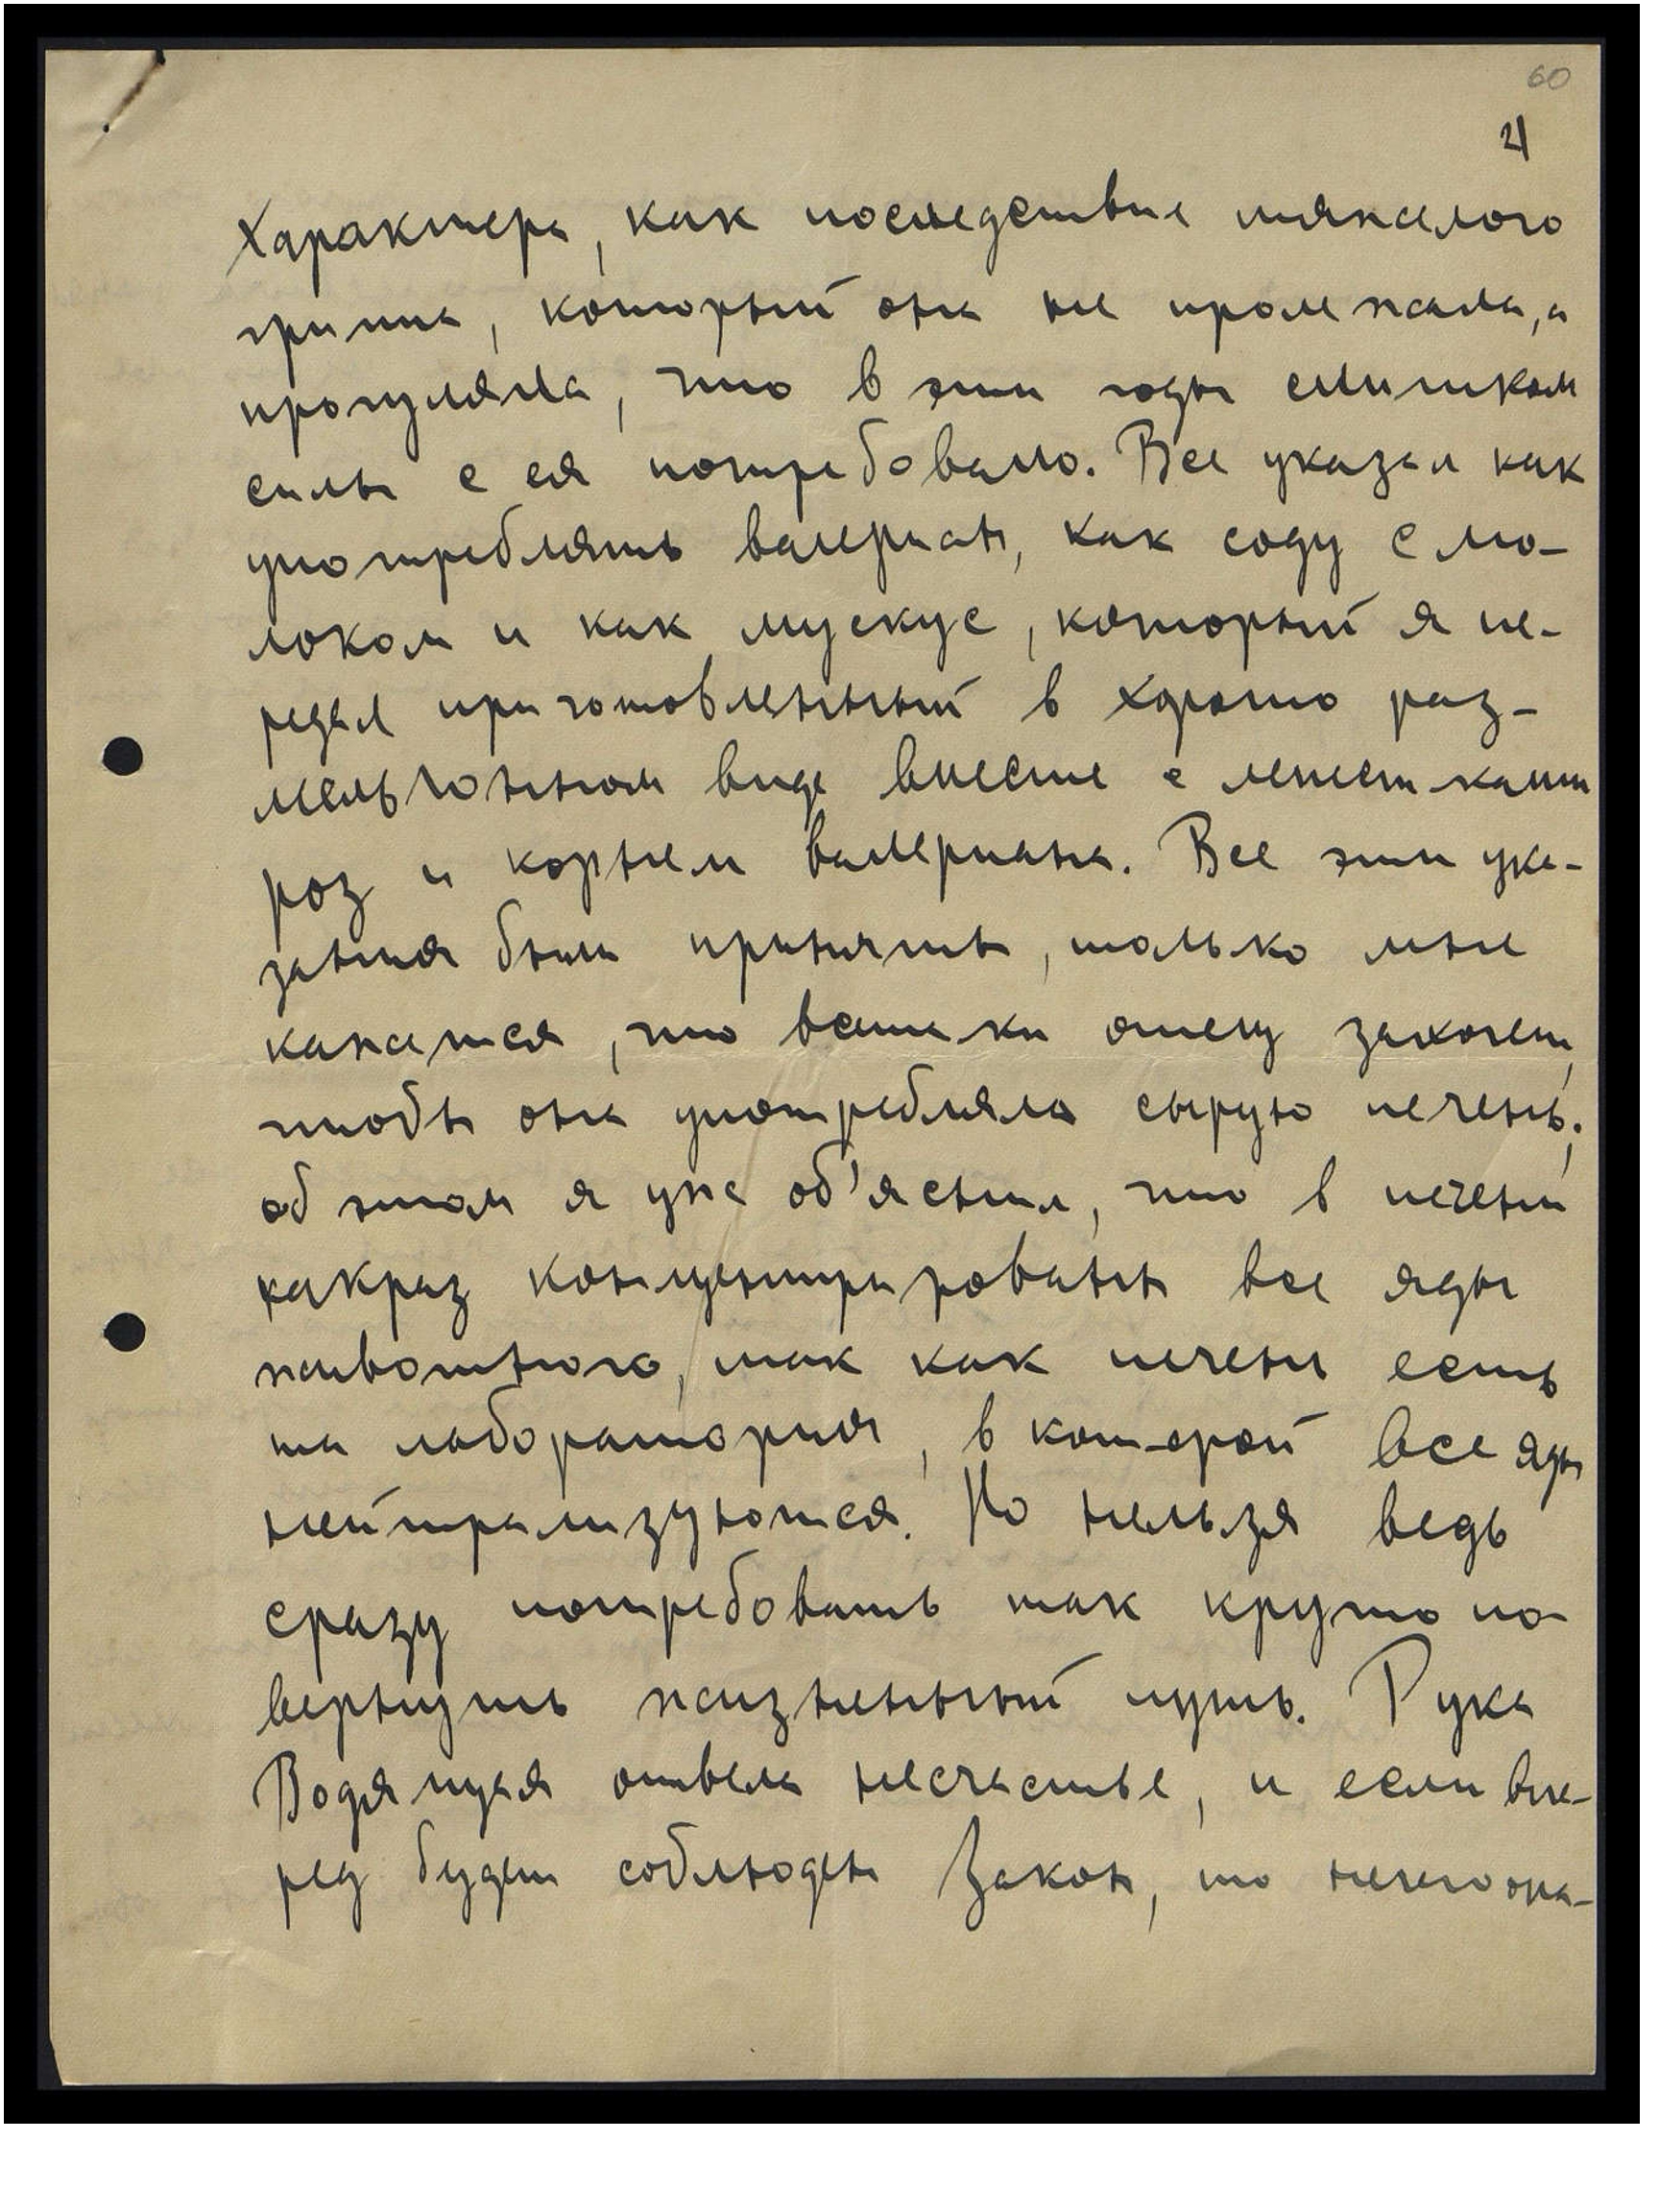 60
21
характера, как последствие тяжелого
гриппа, который она не пролежала, а
прогуляла, что в эти годы слишком
силы с ея потребовало. Все указал как
употреблять валериан, как соду с мо-
локом и как мускус, который я пе-
редал приготовленный в хорошо раз-
мельчонном виде вместе с лепестками
роз и корнем валериана. Все эти ука-
зания были приняты, только мне
кажется, что всетаки отец захочет,
чтобы она употребляла сырую печень;
об этом я уже об'яснил, что в печени
какраз концентрированы все яды
животного, так как печень есть
та лаборатория, в которой все яды
нейтрализуются. Но нельзя ведь
сразу потребовать так круто по-
вернуть жизненный путь. Рука
Водящая отвела несчастье, и если впе-
ред будет соблюден Закон, то нечего опа-